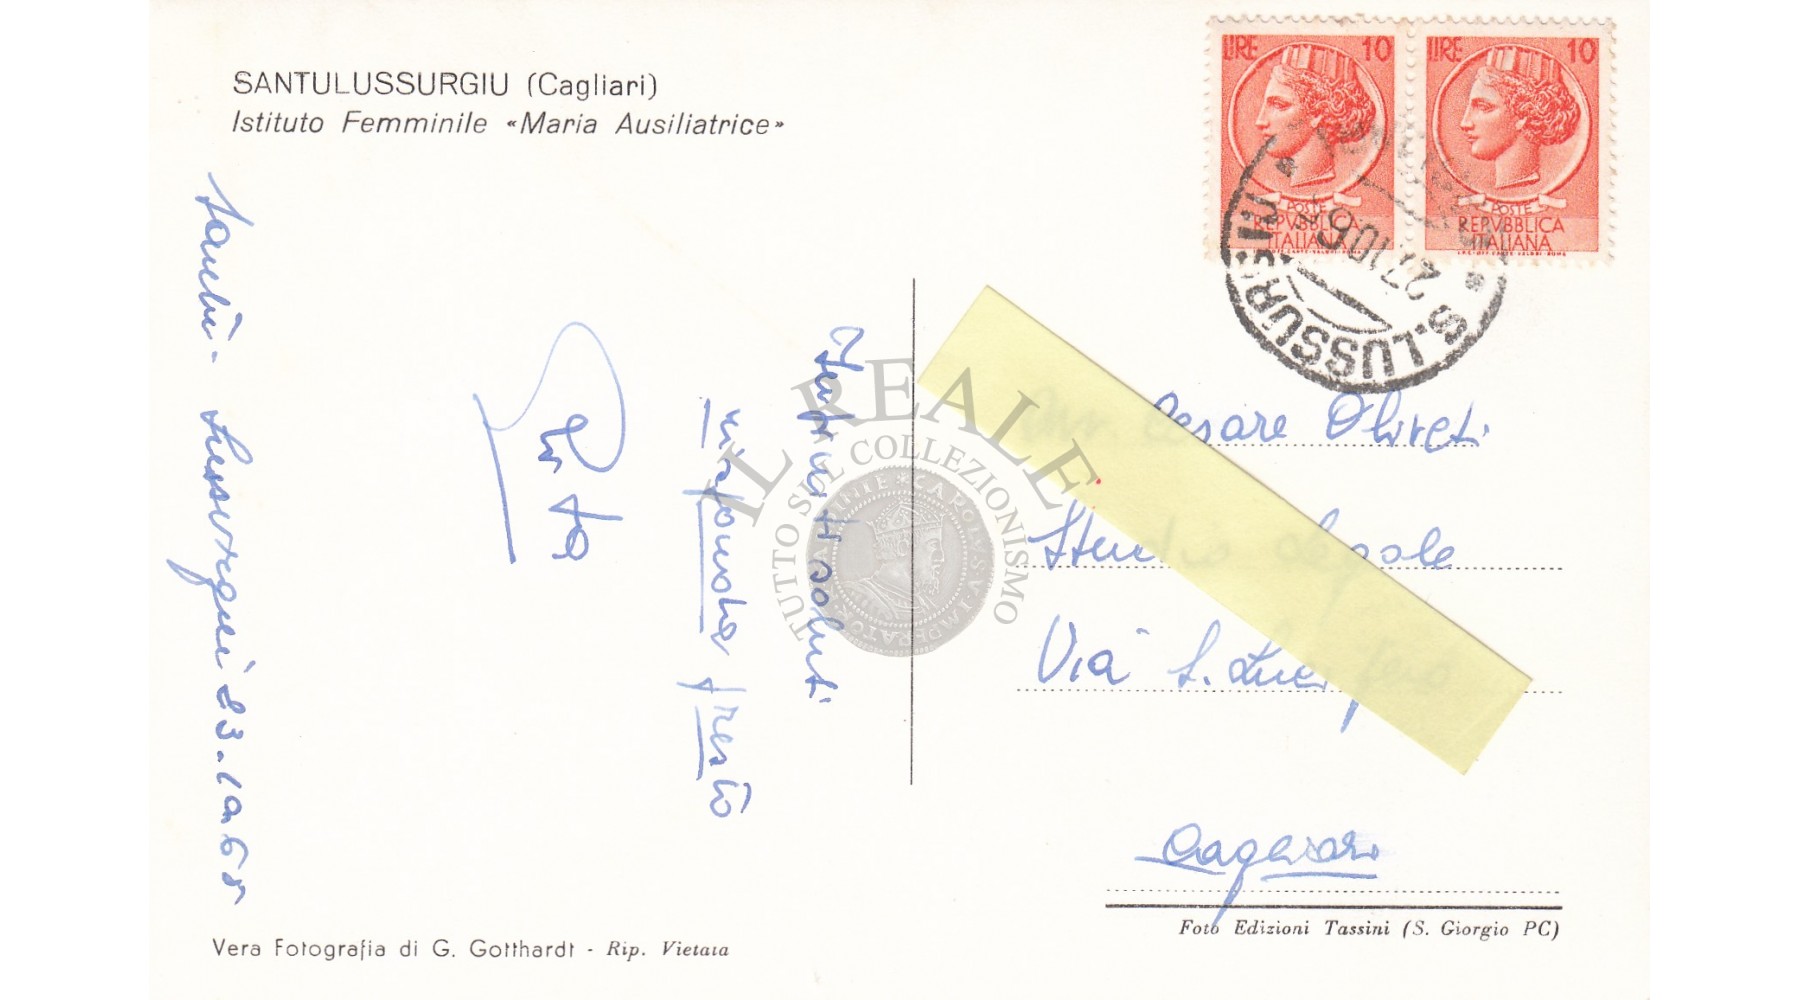 SANTULUSSURGIU (Cagliari)
Istituto Femminile «Maria Ausiliatrice»
LIRE 10
POSTE
REPVBBLICA
ITALIANA
LIRE 10
POSTE
REPVBBLICA
ITALIANA
S. LUSSURGIU
27.10.6
Santu Lussurgiu 23-10-65
Infiniti saluti
Cesare Oliveti
Studio Legale
Via S. Lucifero
Cagliari
IL REALE
TUTTO SUL COLLEZIONISMO
Vera Fotografia di G. Gotthardt - Rip. Vietata
Foto Edizioni Tassini (S. Giorgio PC)